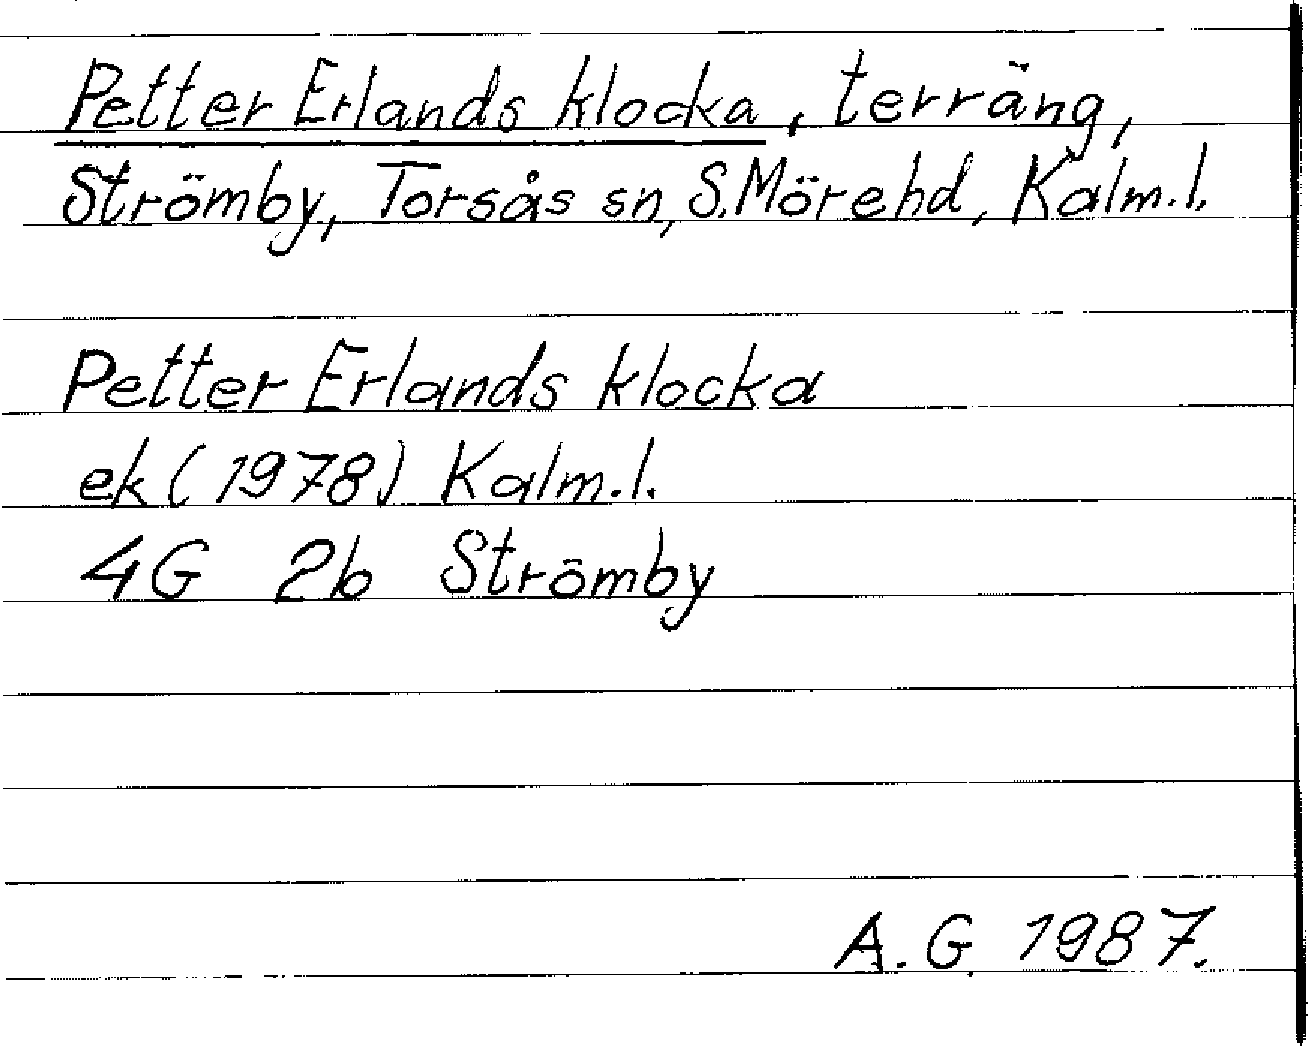 Petter Erlands klocka, terräng,
Strömby, Torsås sn, S. Möre hd, Kalm. l.
Petter Erlands klocka
ek (1978) Kalm. l.
4G 2b Strömby
A. G. 1987.